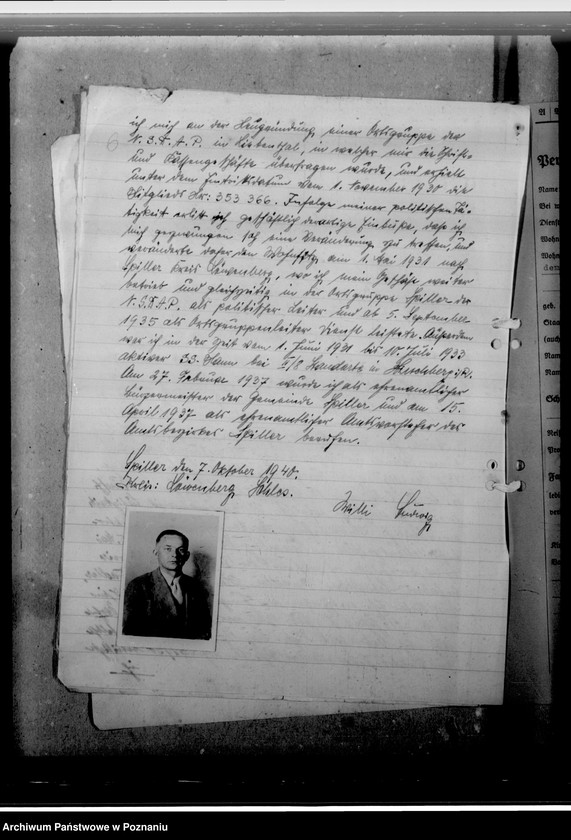 6
ich mich an der Neugründung einer Ortsgruppe der
N.S.D.A.P. in Liebenthal, in welcher mir die Schrift-
und Kassengeschäfte übertragen wurde, und erhielt
unter dem Eintrittsdatum vom 1. November 1930 die
Mitglieds Nr: 353 366. Infolge meiner politischen Tä-
tigkeit erlitt ich geschäftlich derartige Einbuße, daß ich
mich gezwungen sah eine Veränderung zu treffen, und
veränderte daher den Wohnsitz am 1. Mai 1931 nach
Spiller Kreis Löwenberg, wo ich mein Geschäft weiter
betrieb und gleichzeitig in der Ortsgruppe Spiller der
N.S.D.A.P. als politischer Leiter und ab 5. September
1935 als Ortsgruppenleiter Dienste leistete. Außerdem
war ich in der Zeit vom 1. Juni 1931 bis 10. Juli 1933
aktiver SS. Mann bei Standarte in Hirschberg i/R.
Am 27. Februar 1937 wurde ich als ehrenamtlicher
Bürgermeister der Gemeinde Spiller und am 15.
April 1937 als ehrenamtlicher Amtsvorsteher des
Amtsbezirkes Spiller berufen.
Spiller den 7. Oktober 1940.
Kreis: Löwenberg Schles.
Willi Ludwig
A
Per
Name
Bei
Dienst
Wohn
Wohn
geb.
Staa
(auch
Nam
Nam
Sch
Archiwum Państwowe w Poznaniu